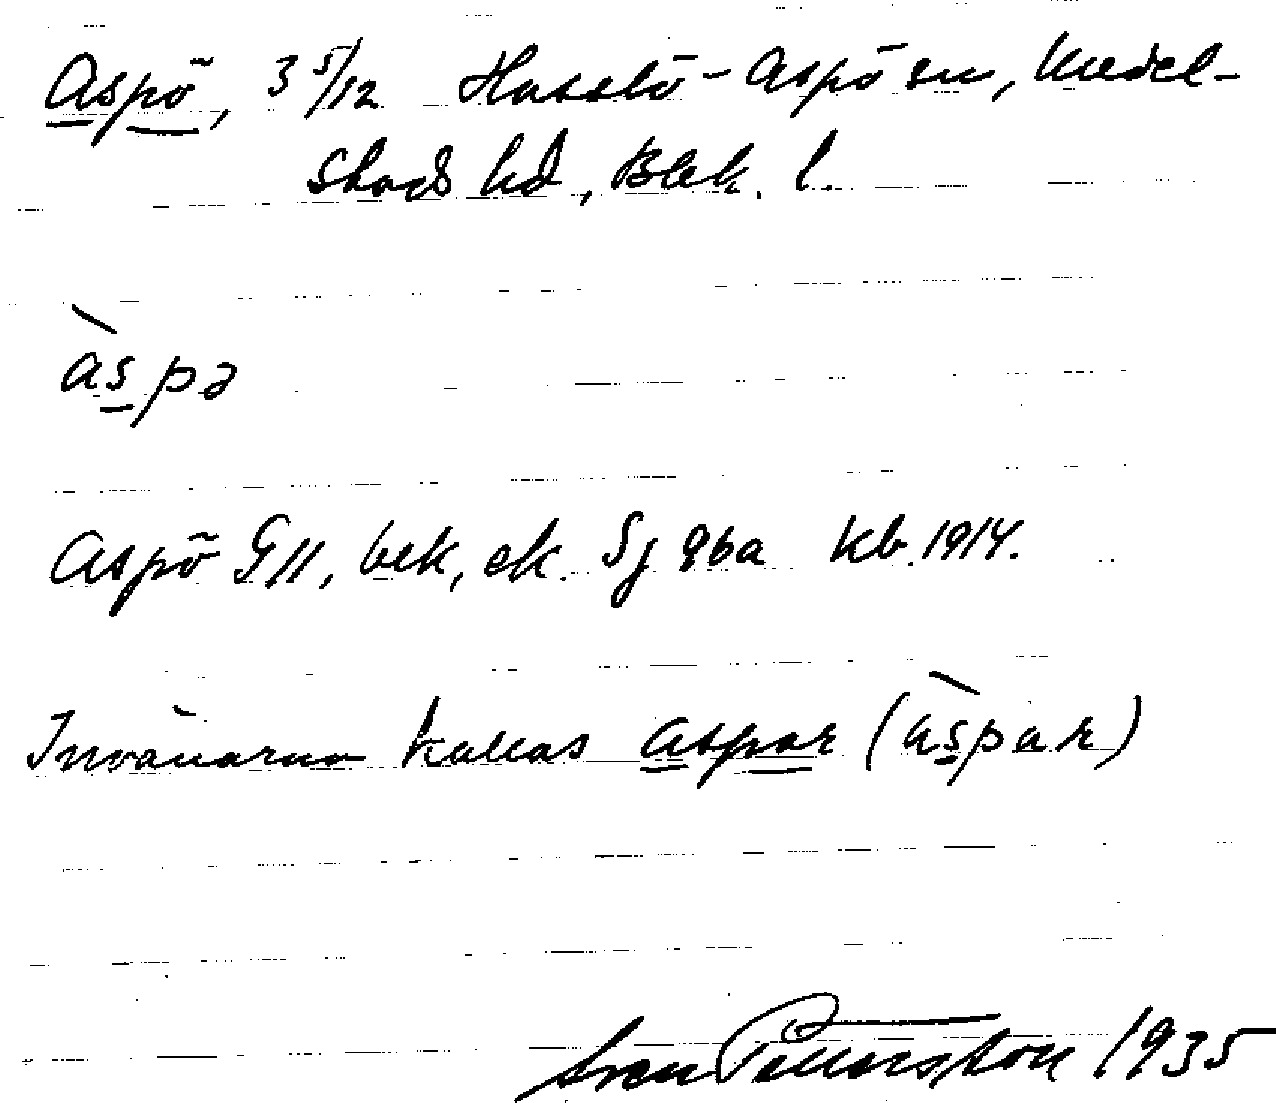 Aspö, 3 5/12 Hasslö-Aspö sn, Medel-
stads hd, Blek. l.
àspə
Aspö G11, bek, ek. Sj 96a kb. 1914.
Invånarna kallas aspar (àspar)
Sven Petterson 1935